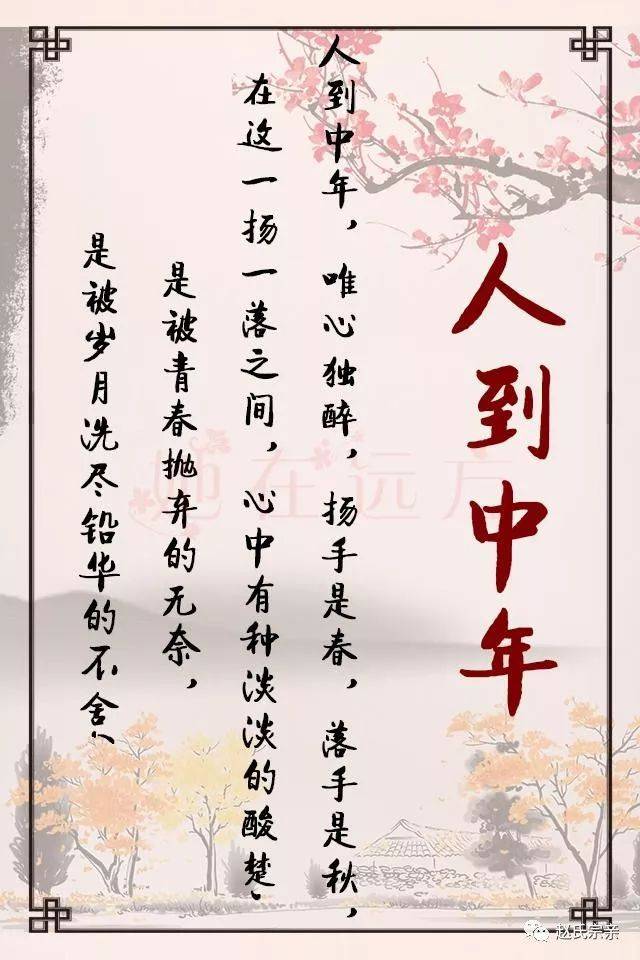 人到中年
人到中年，唯心独醉，扬手是春，落手是秋，
在这一扬一落之间，心中有种淡淡的酸楚、
是被青春抛弃的无奈，
是被岁月洗尽铅华的不舍、
她在远方
赵氏宗亲